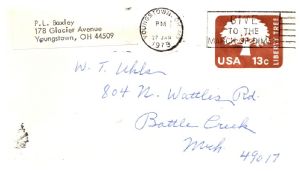 P.L. Baxley
178 Glacier Avenue
Youngstown, OH 44509
YOUNGSTOWN
PM
27 JAN
1978
GIVE
TO THE
MARCH OF DIMES
LIBERTY TREE
USA 13c
W. T. Uhls
804 N. Wattles Rd.
Battle Creek
Mich
49017